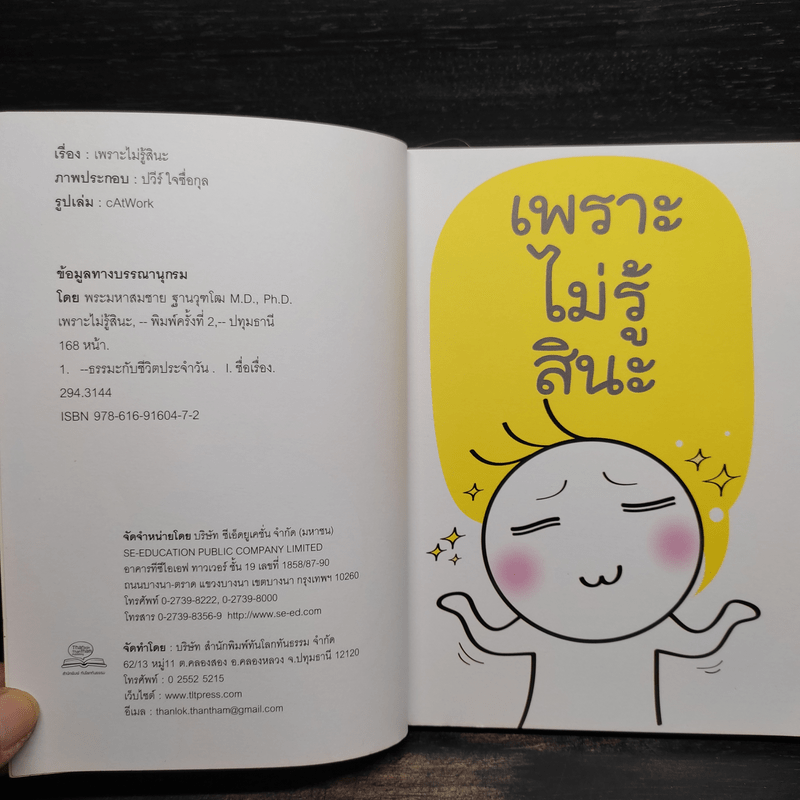 เรื่อง : เพราะไม่รู้สินะ
ภาพประกอบ : ปวีร์ ใจซื่อกุล
รูปเล่ม : cAtWork
ข้อมูลทางบรรณานุกรม
โดย พระมหาสมชาย ฐานวุฑฺโฒ M.D., Ph.D.
เพราะไม่รู้สินะ, -- พิมพ์ครั้งที่ 2,-- ปทุมธานี
168 หน้า.
1. --ธรรมะกับชีวิตประจำวัน . I. ชื่อเรื่อง.
294.3144
ISBN 978-616-91604-7-2
จัดจำหน่ายโดย บริษัท ซีเอ็ดยูเคชั่น จำกัด (มหาชน)
SE-EDUCATION PUBLIC COMPANY LIMITED
อาคารทีซีไอเอฟ ทาวเวอร์ ชั้น 19 เลขที่ 1858/87-90
ถนนบางนา-ตราด แขวงบางนา เขตบางนา กรุงเทพฯ 10260
โทรศัพท์ 0-2739-8222, 0-2739-8000
โทรสาร 0-2739-8356-9 http://www.se-ed.com
จัดทำโดย : บริษัท สำนักพิมพ์ทันโลกทันธรรม จำกัด
62/13 หมู่11 ต.คลองสอง อ.คลองหลวง จ.ปทุมธานี 12120
โทรศัพท์ : 0 2552 5215
เว็บไซต์ : www.titpress.com
อีเมล : thanlok.thantham@gmail.com
เพราะ
ไม่รู้
สินะ